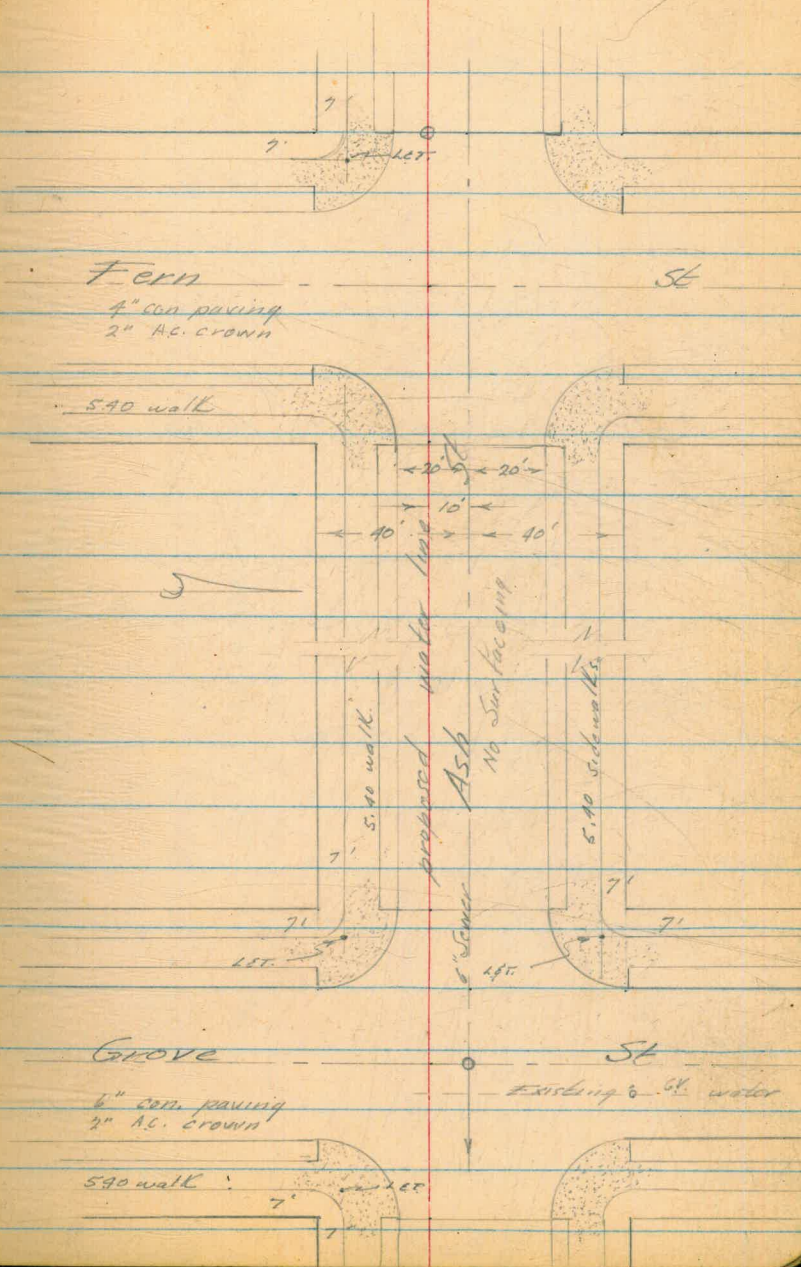 7'
7'
L&T.
Fern St
4" con paving
2" A.C. crown
5.40 walk
20' 20'
10'
40' 40'
proposed water line
Ash St
No Surfaceing
6" Sewer
5.40 walk
5.40 sidewalks
7'
7'
7'
7'
L&T.
L&T.
Grove St
Existing 6" G.V. water
6" con. paving
2" A.C. crown
590 walk
L&T
7'
7'